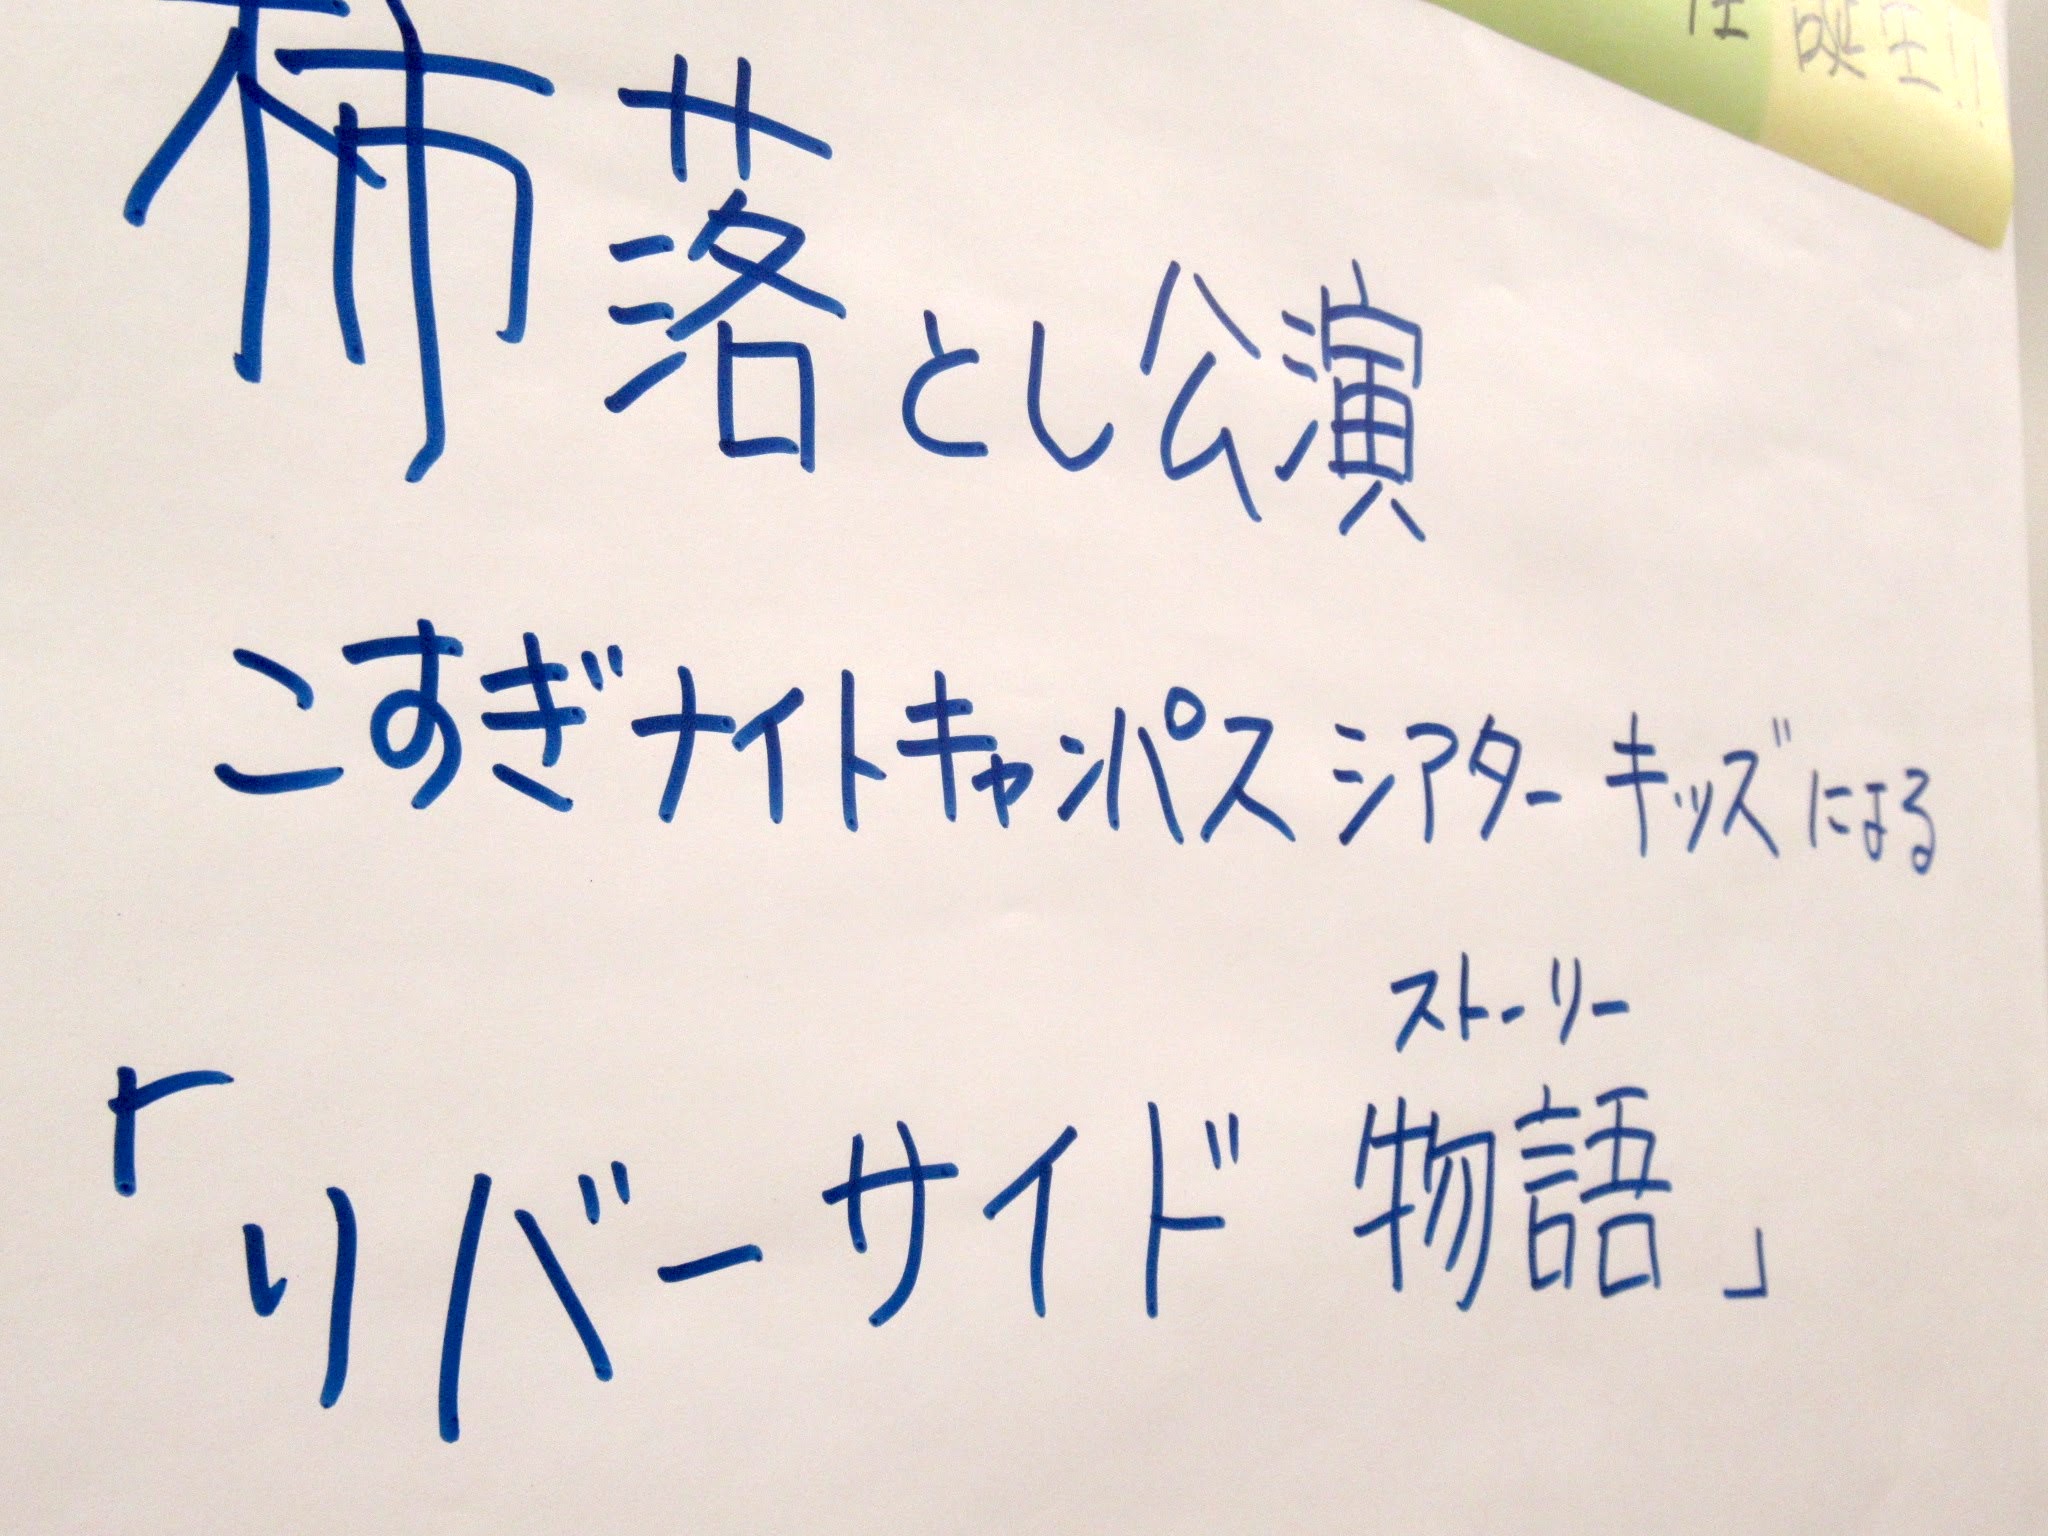 誕生!!
杮落とし公演
こすぎナイトキャンパスシアターキッズによる
ストーリー
「リバーサイド物語」